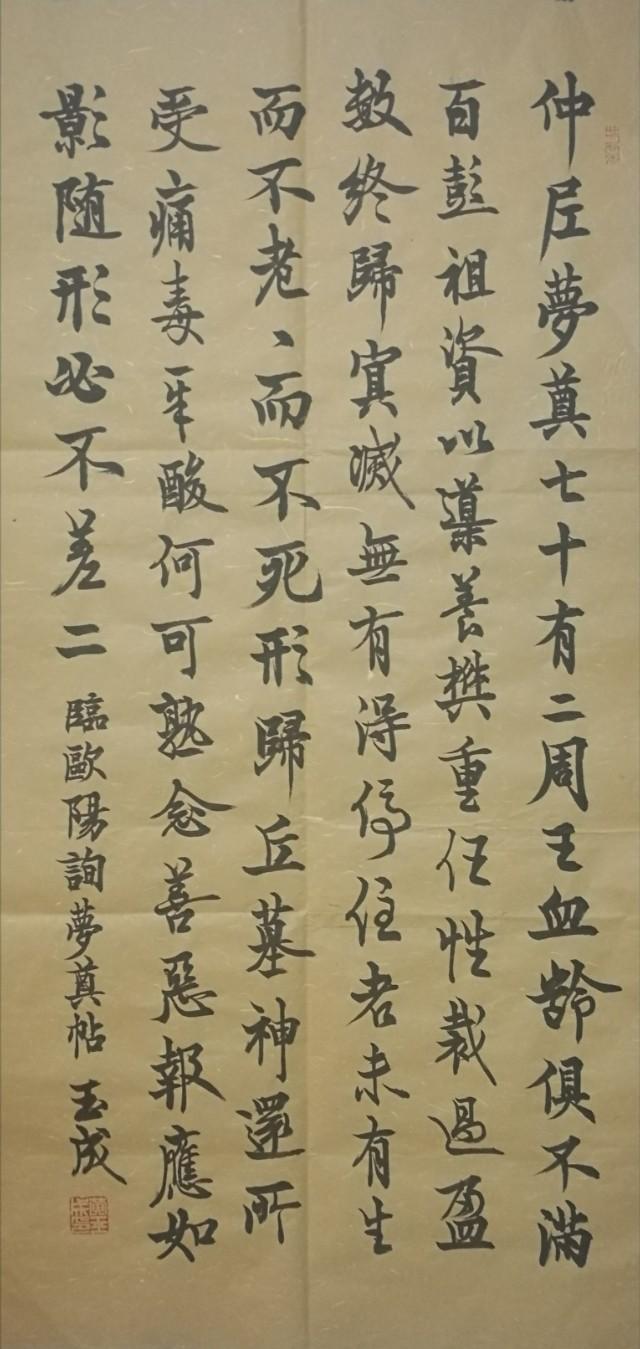 仲尼夢奠七十有二周王血齡俱不滿
百彭祖資以導養樊重任性裁過盈
數終歸冥滅無有得停住者未有生
而不老〻而不死形歸丘墓神還所
受痛毒辛酸何可熟念善惡報應如
影随形必不差二 臨歐陽詢夢奠帖 玉成